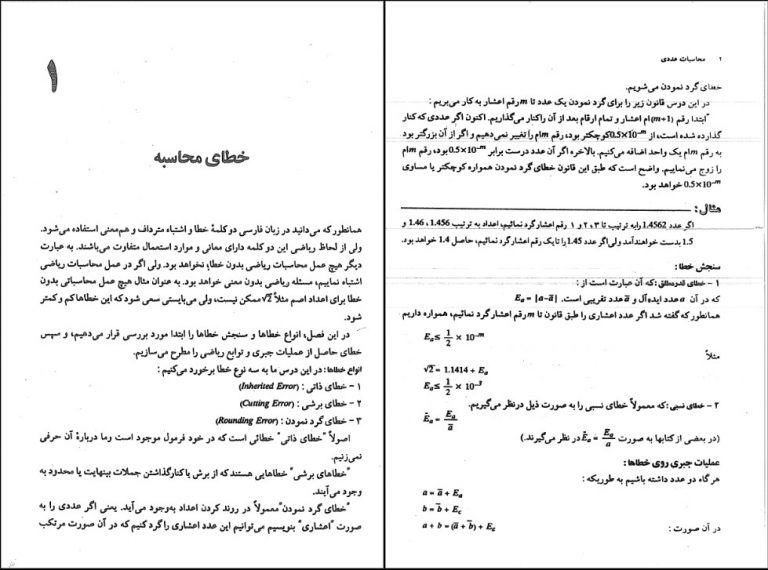 ۱
خطای محاسبه
همانطور که می‌دانید در زبان فارسی دو کلمهٔ خطا و اشتباه مترداف و هم‌معنی استفاده می‌شود.
ولی از لحاظ ریاضی این دو کلمه دارای معانی و موارد استعمال متفاوت می‌باشند. به عبارت
دیگر هیچ عمل محاسبات ریاضی بدون خطا، نخواهد بود. ولی اگر در عمل محاسبات ریاضی
اشتباه نماییم، مسئله ریاضی بدون معنی خواهد بود. به عنوان مثال هیچ عمل محاسباتی بدون
خطا برای اعداد اصم مثلاً √2 ممکن نیست، ولی می‌بایستی سعی شود که این خطاها کم و کمتر
شود.
در این فصل، انواع خطاها و سنجش خطاها را ابتدا مورد بررسی قرار می‌دهیم، و سپس
خطای حاصل از عملیات جبری و توابع ریاضی را مطرح می‌سازیم.
انواع خطاها : در این درس ما به سه نوع خطا برخورد می‌کنیم :
۱ - خطای ذاتی : (Inherited Error)
۲ - خطای برشی : (Cutting Error)
۳ - خطای گرد نمودن : (Rounding Error)
اصولاً "خطای ذاتی" خطائی است که در خود فرمول موجود است وما دربارهٔ آن حرفی
نمی‌زنیم.
"خطاهای برشی" خطاهایی هستند که از برش یا کنار گذاشتن جملات بینهایت یا محدود به
وجود می‌آیند.
"خطای گرد نمودن" معمولاً در روند کردن اعداد به‌وجود می‌آید. یعنی اگر عددی را به
صورت "اعشاری" بنویسیم می‌توانیم این عدد اعشاری را گرد کنیم که در آن صورت مرتکب
۲ محاسبات عددی
خطای گرد نمودن می‌شویم.
در این دوس قانون زیر را برای گرد نمودن یک عدد تا m رقم اعشار به کار می‌بریم :
"ابتدا رقم (m+1)ام اعشار و تمام ارقام بعد از آن را کنار می‌گذاریم. اکنون اگر عددی که کنار
گذارده شده است، از 0.5×10⁻ᵐ کوچکتر بود، رقم mام را تغییر نمی‌دهیم و اگر از آن بزرگتر بود
به رقم mام یک واحد اضافه می‌کنیم. بالاخره اگر آن عدد درست برابر 0.5×10⁻ᵐ بود، رقم mام
را زوج می‌نماییم. واضح است که طبق این قانون خطای گرد نمودن همواره کوچکتر یا مساوی
0.5×10⁻ᵐ خواهد بود.
مثال :
اگر عدد 1.4562 را به ترتیب تا ۳، ۲ و ۱ رقم اعشار گرد نمائیم، اعداد به ترتیب 1.456، 1.46 و
1.5 بدست خواهند آمد ولی اگر عدد 1.45 را تا یک رقم اعشار گرد نمائیم، حاصل 1.4 خواهد بود.
سنجش خطا :
۱ - خطای قدرمطلق : که آن عبارت است از :
که در آن a عدد ایده‌آل و a̅ عدد تقریبی است. Eₐ = |a-a̅|
همانطور که گفته شد اگر عدد اعشاری را طبق قانون تا m رقم اعشار گرد نمائیم، همواره داریم
Eₐ ≤ 1/2 × 10⁻ᵐ
مثلاً
√2 = 1.1414 + Eₐ
Eₐ ≤ 1/2 × 10⁻³
۲ - خطای نسبی : که معمولاً خطای نسبی را به صورت ذیل درنظر می‌گیریم.
E̅ₐ = Eₐ/a̅
(در بعضی از کتابها به صورت E̅ₐ = Eₐ/a در نظر می‌گیرند.)
عملیات جبری روی خطاها :
هرگاه دو عدد داشته باشیم به طوریکه :
a = a̅ + Eₐ
b = b̅ + E_c
در آن صورت : a + b = (a̅ + b̅) + E_c